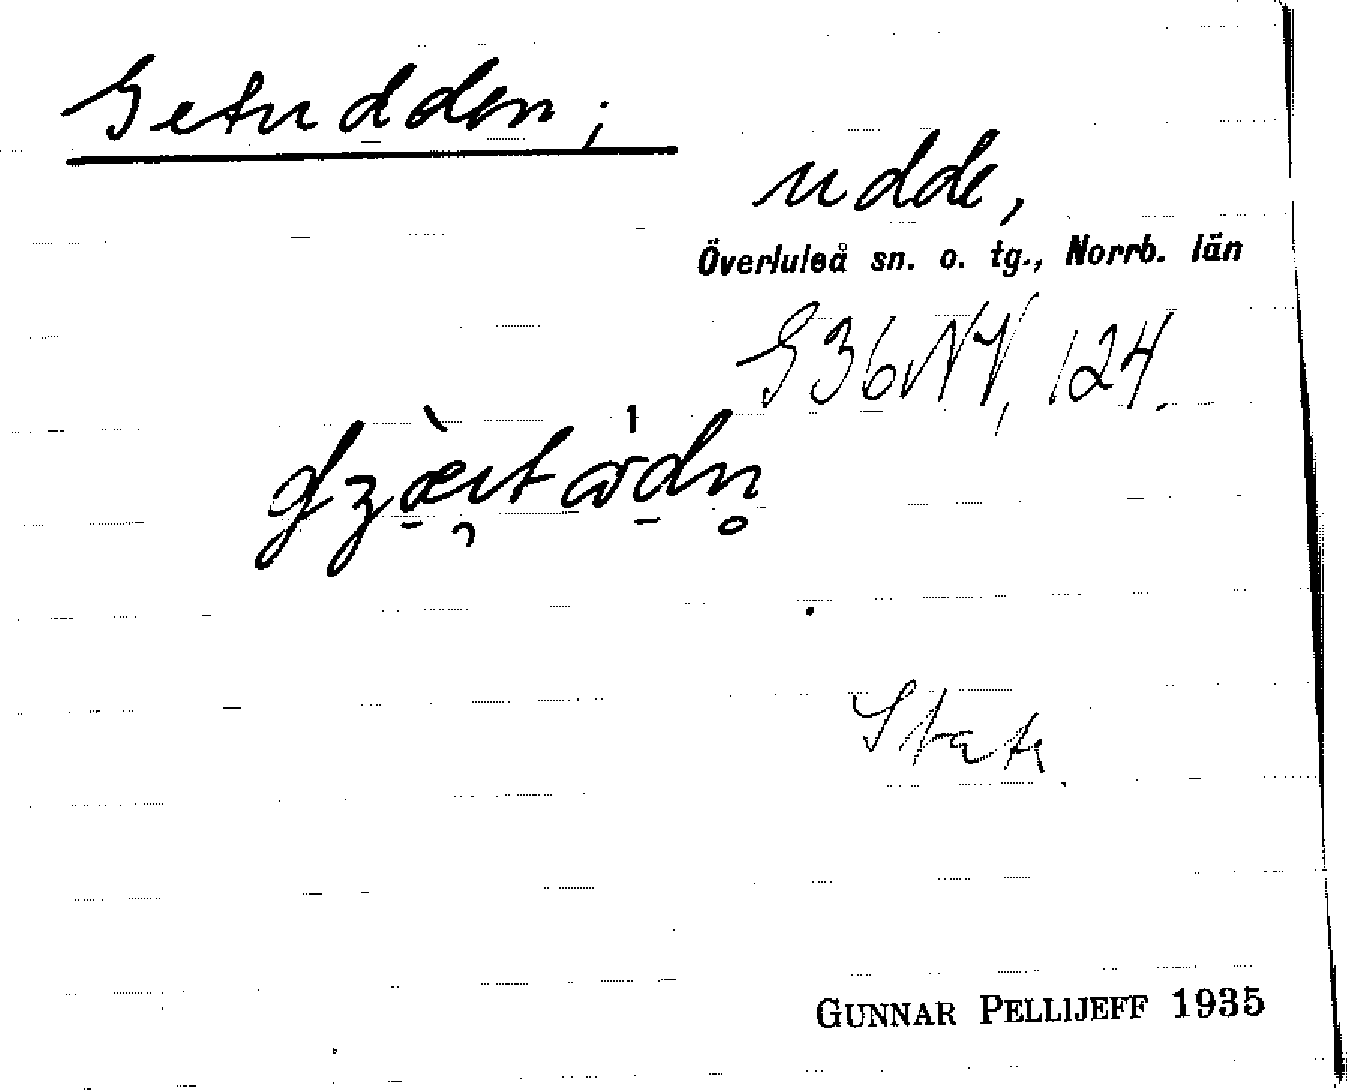 Getudden;
udde,
Överluleå sn. o. tg., Norrb. län
G36NV, 124.
GUNNAR PELLIJEFF 1935